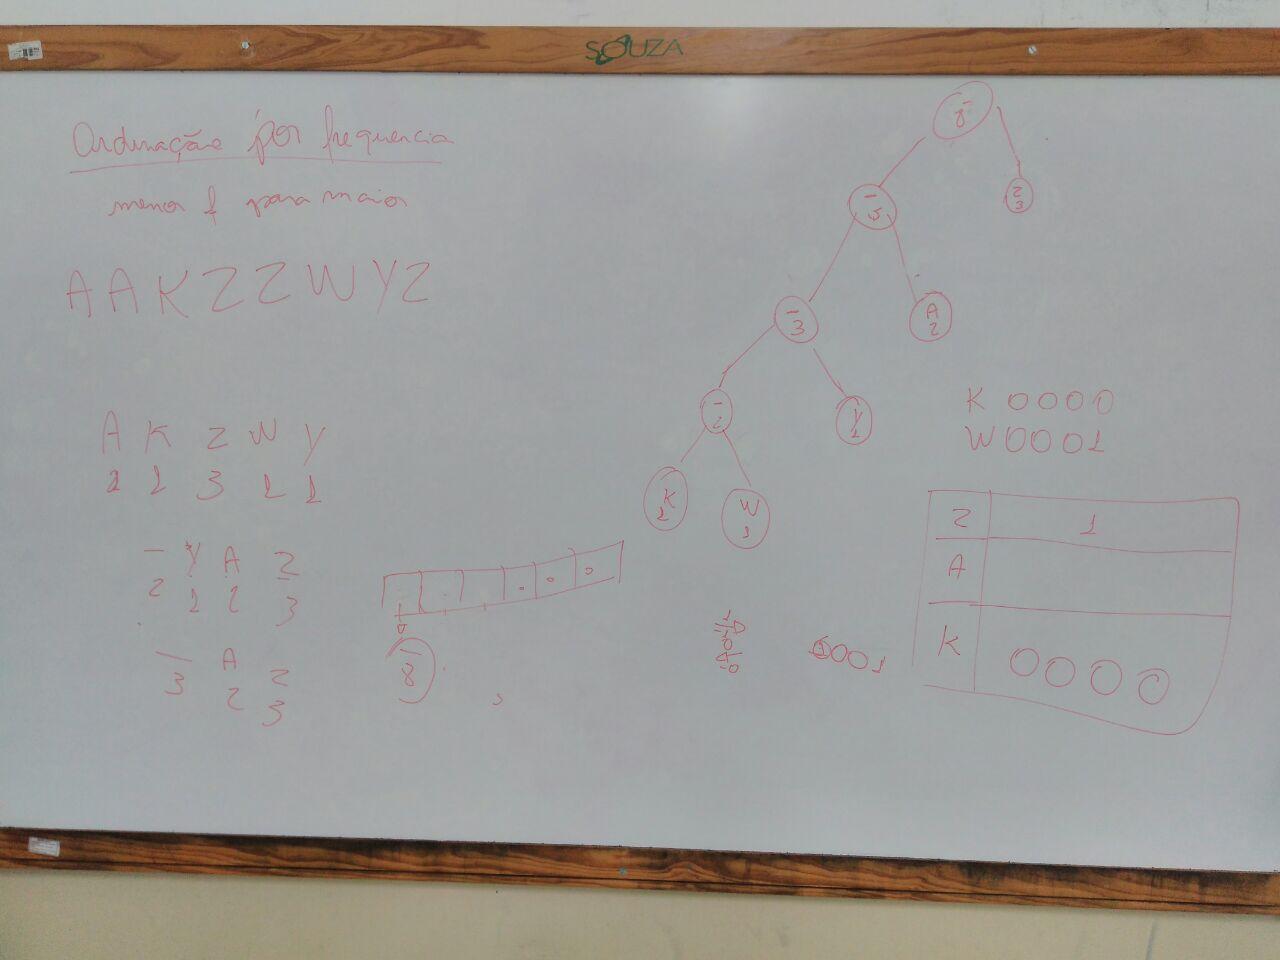 SOUZA
Ordenação por frequencia
menor f para maior
A A K Z Z W Y Z
A K Z W Y
2 1 3 1 1
- Y A Z
2 1 2 3
- A Z
3 2 3
-
8
-
8
Z
3
-
5
-
3
A
2
-
2
Y
1
K
1
W
1
K 0000
W 0001
Z 1
A
K 0000
0001